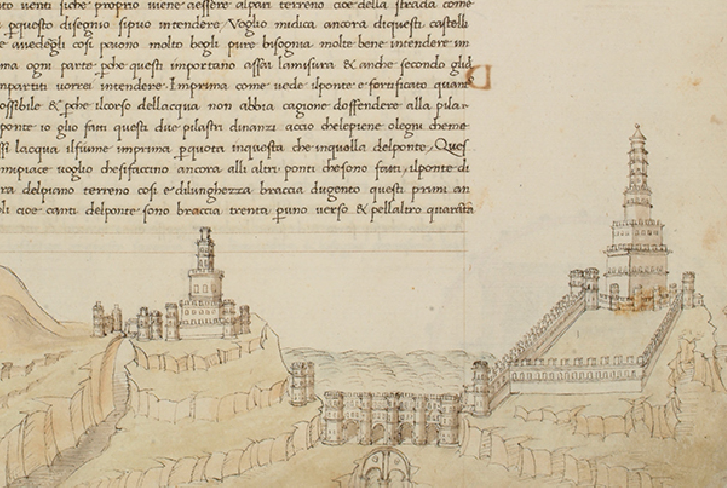 to venti siche proprio viene aessere alpari terreno cioe della strada come
pquesto disegnio sipuo intendere, Voglio midica ancora diquesti castelli
e avedegli cosi paiono molto begli pure bisognia molto bene intendere in
ma ogni parte pche questi importano assai lamisura & anche secondo gli
mpartiti vorrei intendere. Imprima come vede ilponte e fortificato quant
ossibile & pche ilcorso dellacqua non abbia cagione doffendere alla pilar
ponte io glio fatti questi due pilastri dinanzi accio chelepiene olegni cheme
ssi lacqua ilfiume imprima pquota inquesta che inquella delponte, Ques
mmipiace voglio chesifaccino ancora alli altri ponti chesono fatti, ilponte di
ra delpiano terreno cosi e dilunghezza braccia dugento questi primi an
oli cioe canti delponte sono braccia trenta puno verso & pellaltro quarata